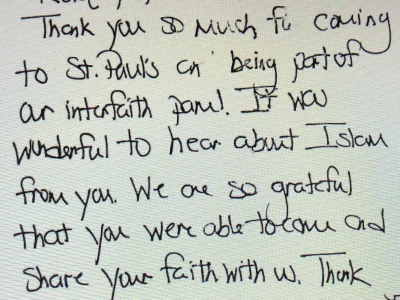 Thank you so much for coming
to St. Paul's an' being part of
our interfaith panel. It was
wonderful to hear about Islam
from you. We are so grateful
that you were able to come and
share your faith with us. Thank